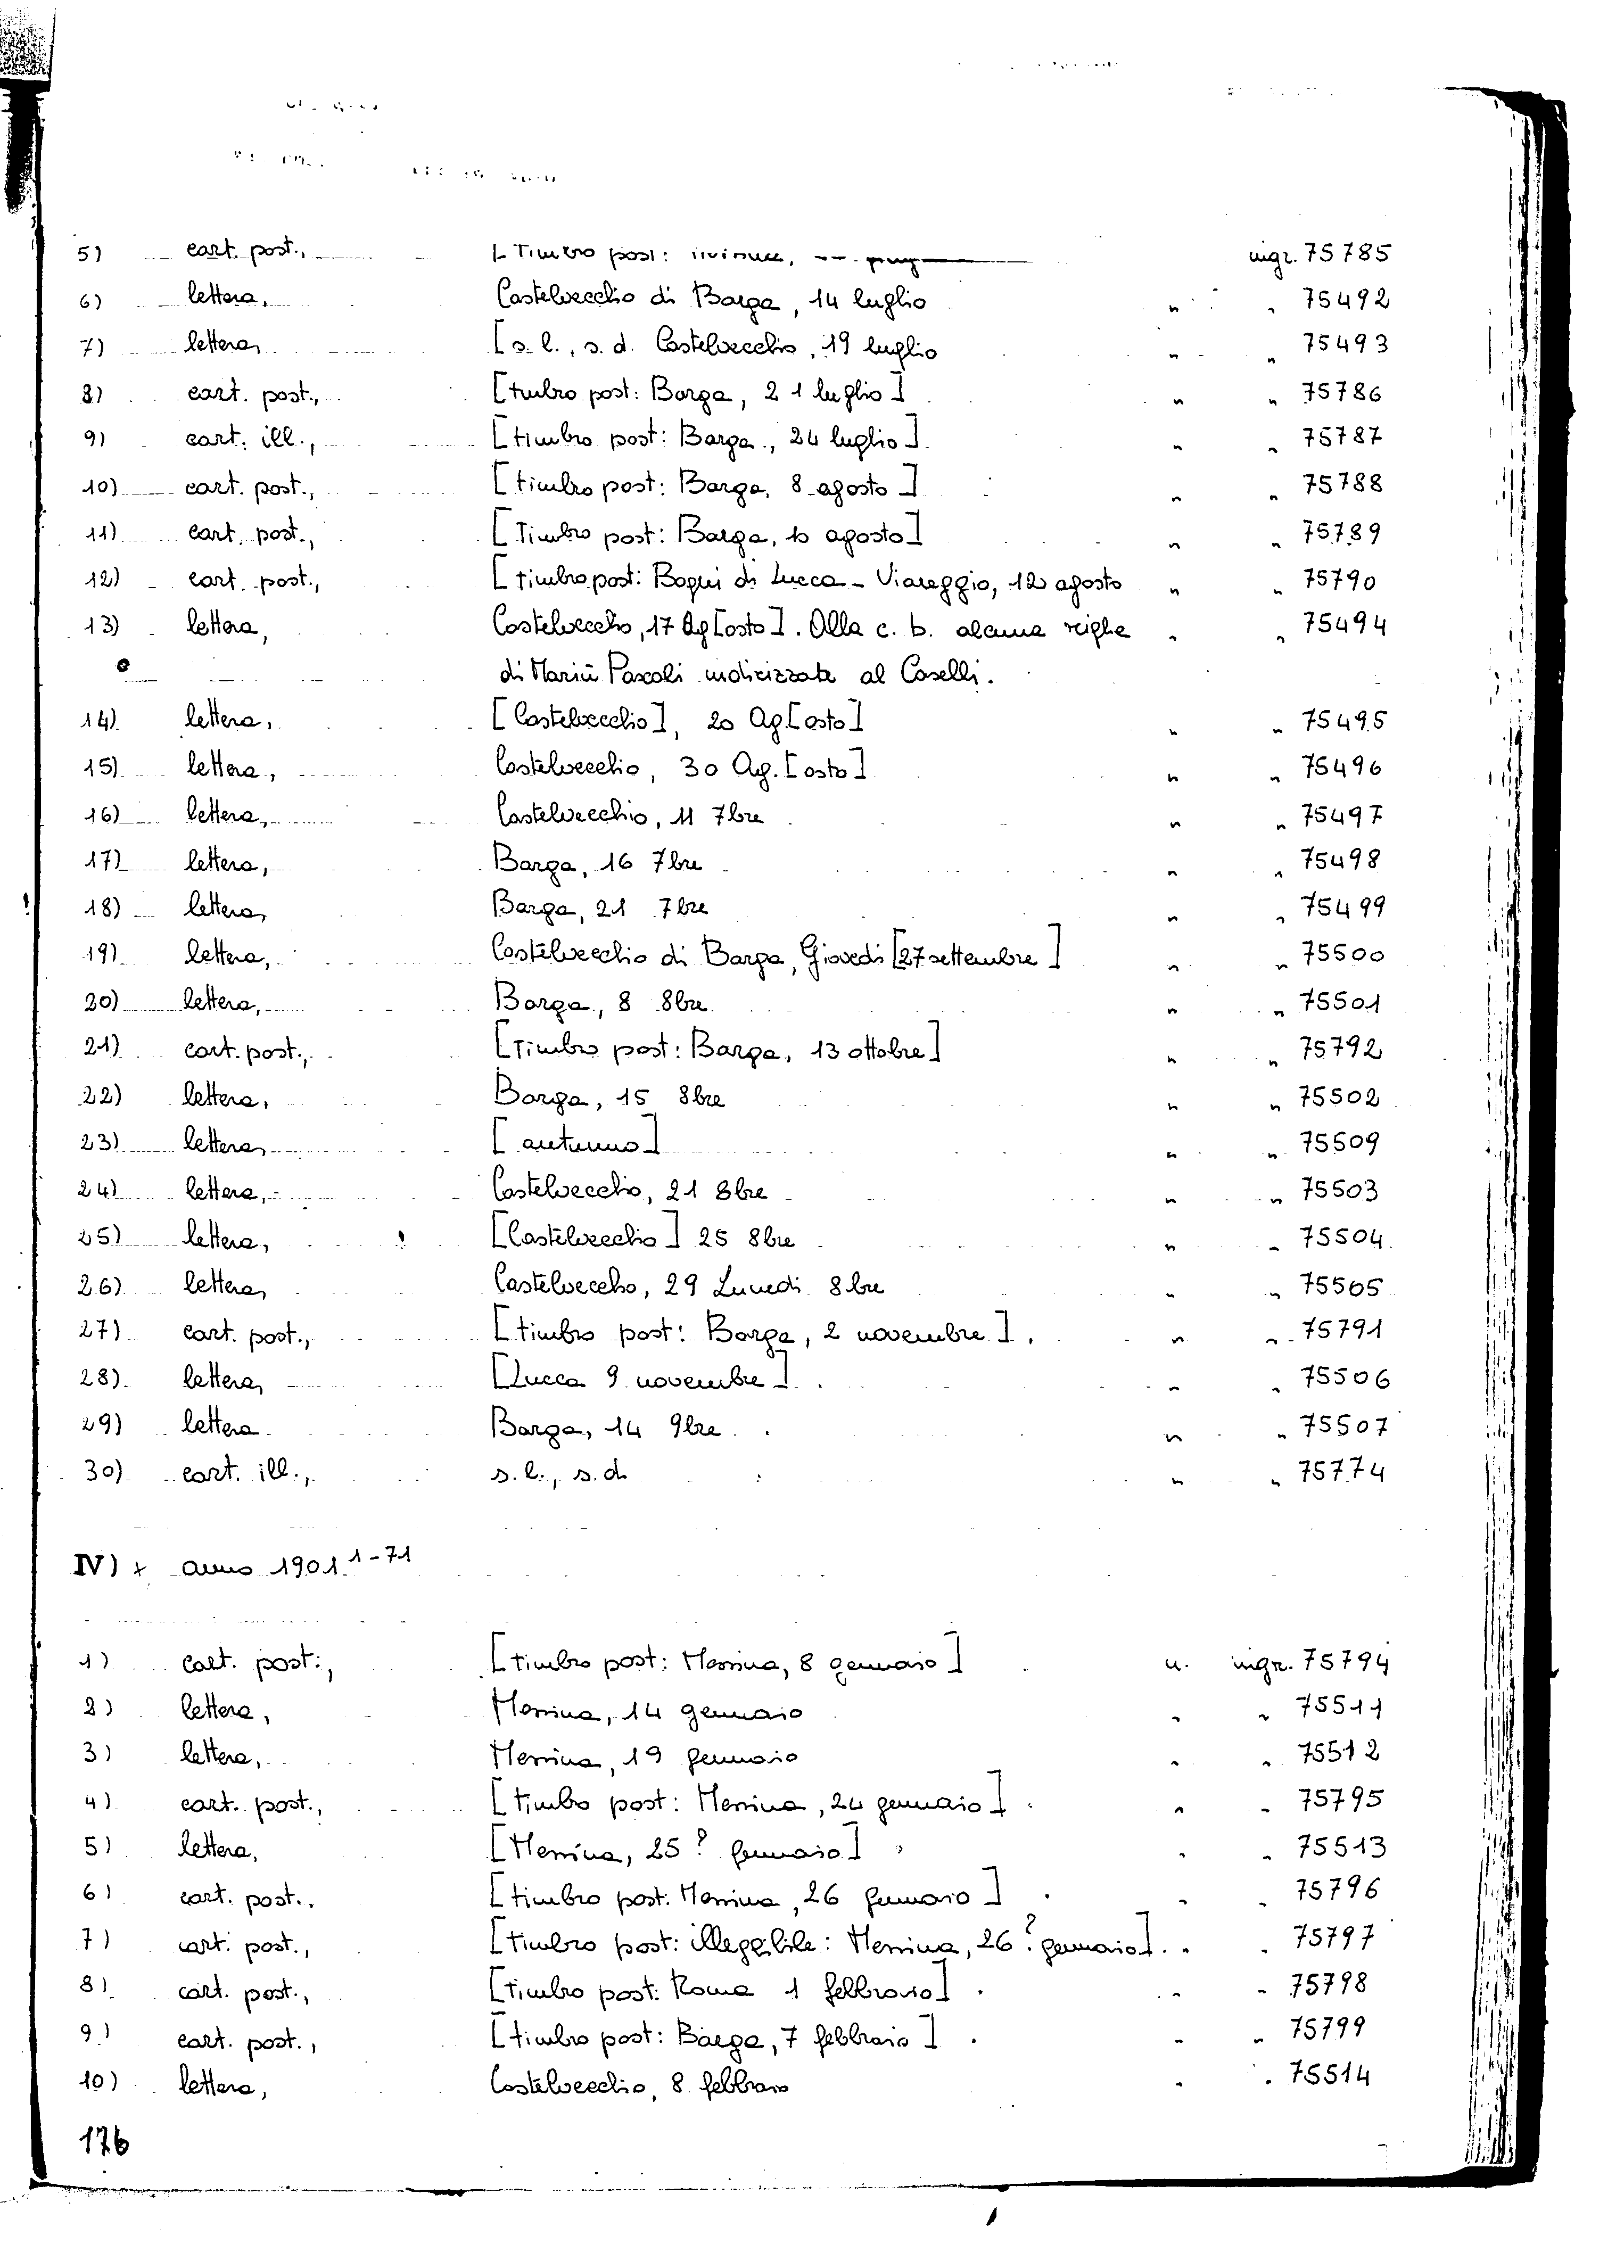 5) cart. post., [Timbro post: ingr. 75785
6) lettera, Castelvecchio di Barga, 14 luglio " " 75492
7) lettera, [s. l., s. d. Castelvecchio, 19 luglio " " 75493
8) cart. post., [timbro post: Barga, 21 luglio] " " 75786
9) cart. ill., [timbro post: Barga, 24 luglio] " " 75787
10) cart. post., [timbro post: Barga, 8 agosto] " " 75788
11) cart. post., [Timbro post: Barga, 10 agosto] " " 75789
12) cart. post., [timbro post: Bagni di Lucca - Viareggio, 12 agosto " " 75790
13) lettera, Castelvecchio, 17 Ag[osto]. Alla c. b. alcune righe " " 75494
di Mariù Pascoli indirizzate al Caselli.
14) lettera, [Castelvecchio], 20 Ag.[osto] " " 75495
15) lettera, Castelvecchio, 30 Ag.[osto] " " 75496
16) lettera, Castelvecchio, 11 7bre " " 75497
17) lettera, Barga, 16 7bre " " 75498
18) lettera, Barga, 21 7bre " " 75499
19) lettera, Castelvecchio di Barga, Giovedì [27 settembre] " " 75500
20) lettera, Barga, 8 8bre " " 75501
21) cart. post., [Timbro post: Barga, 13 ottobre] " " 75792
22) lettera, Barga, 15 8bre " " 75502
23) lettera, [autunno] " " 75509
24) lettera, Castelvecchio, 21 8bre " " 75503
25) lettera, [Castelvecchio] 25 8bre " " 75504
26) lettera, Castelvecchio, 29 Lunedi 8bre " " 75505
27) cart. post., [timbro post: Barga, 2 novembre]. " " 75791
28) lettera, [Lucca 9 novembre]. " " 75506
29) lettera Barga, 14 9bre. " " 75507
30) cart. ill., s. l., s. d. " " 75774
IV) + anno 1901 1-71
1) cart. post., [timbro post: Messina, 8 gennaio] n. ingr. 75794
2) lettera, Messina, 14 gennaio " " 75511
3) lettera, Messina, 19 gennaio " " 75512
4) cart. post., [timbro post: Messina, 24 gennaio] " " 75795
5) lettera, [Messina, 25? gennaio] " " 75513
6) cart. post., [timbro post: Messina, 26 gennaio]. " " 75796
7) cart. post., [timbro post: illeggibile: Messina, 26? gennaio]. " " 75797
8) cart. post., [timbro post: Roma 1 febbraio]. " " 75798
9) cart. post., [timbro post: Barga, 7 febbraio]. " " 75799
10) lettera, Castelvecchio, 8 febbraio " " 75514
176